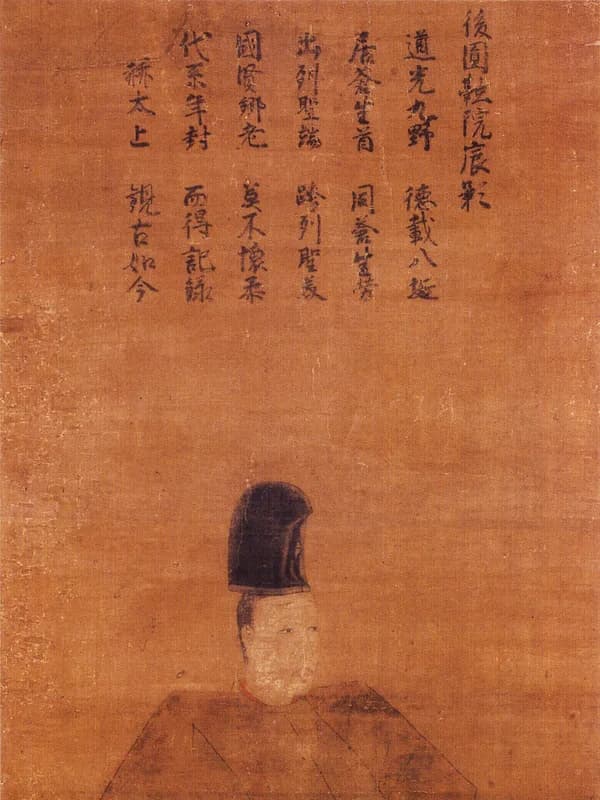 後圓融院宸影
道光九野 德載八埏
居蒼生首 同蒼生勞
出列聖端 列聖
國賢鄉老 莫不懷柔
代系年封 而得記錄
稱太上 觀古如今